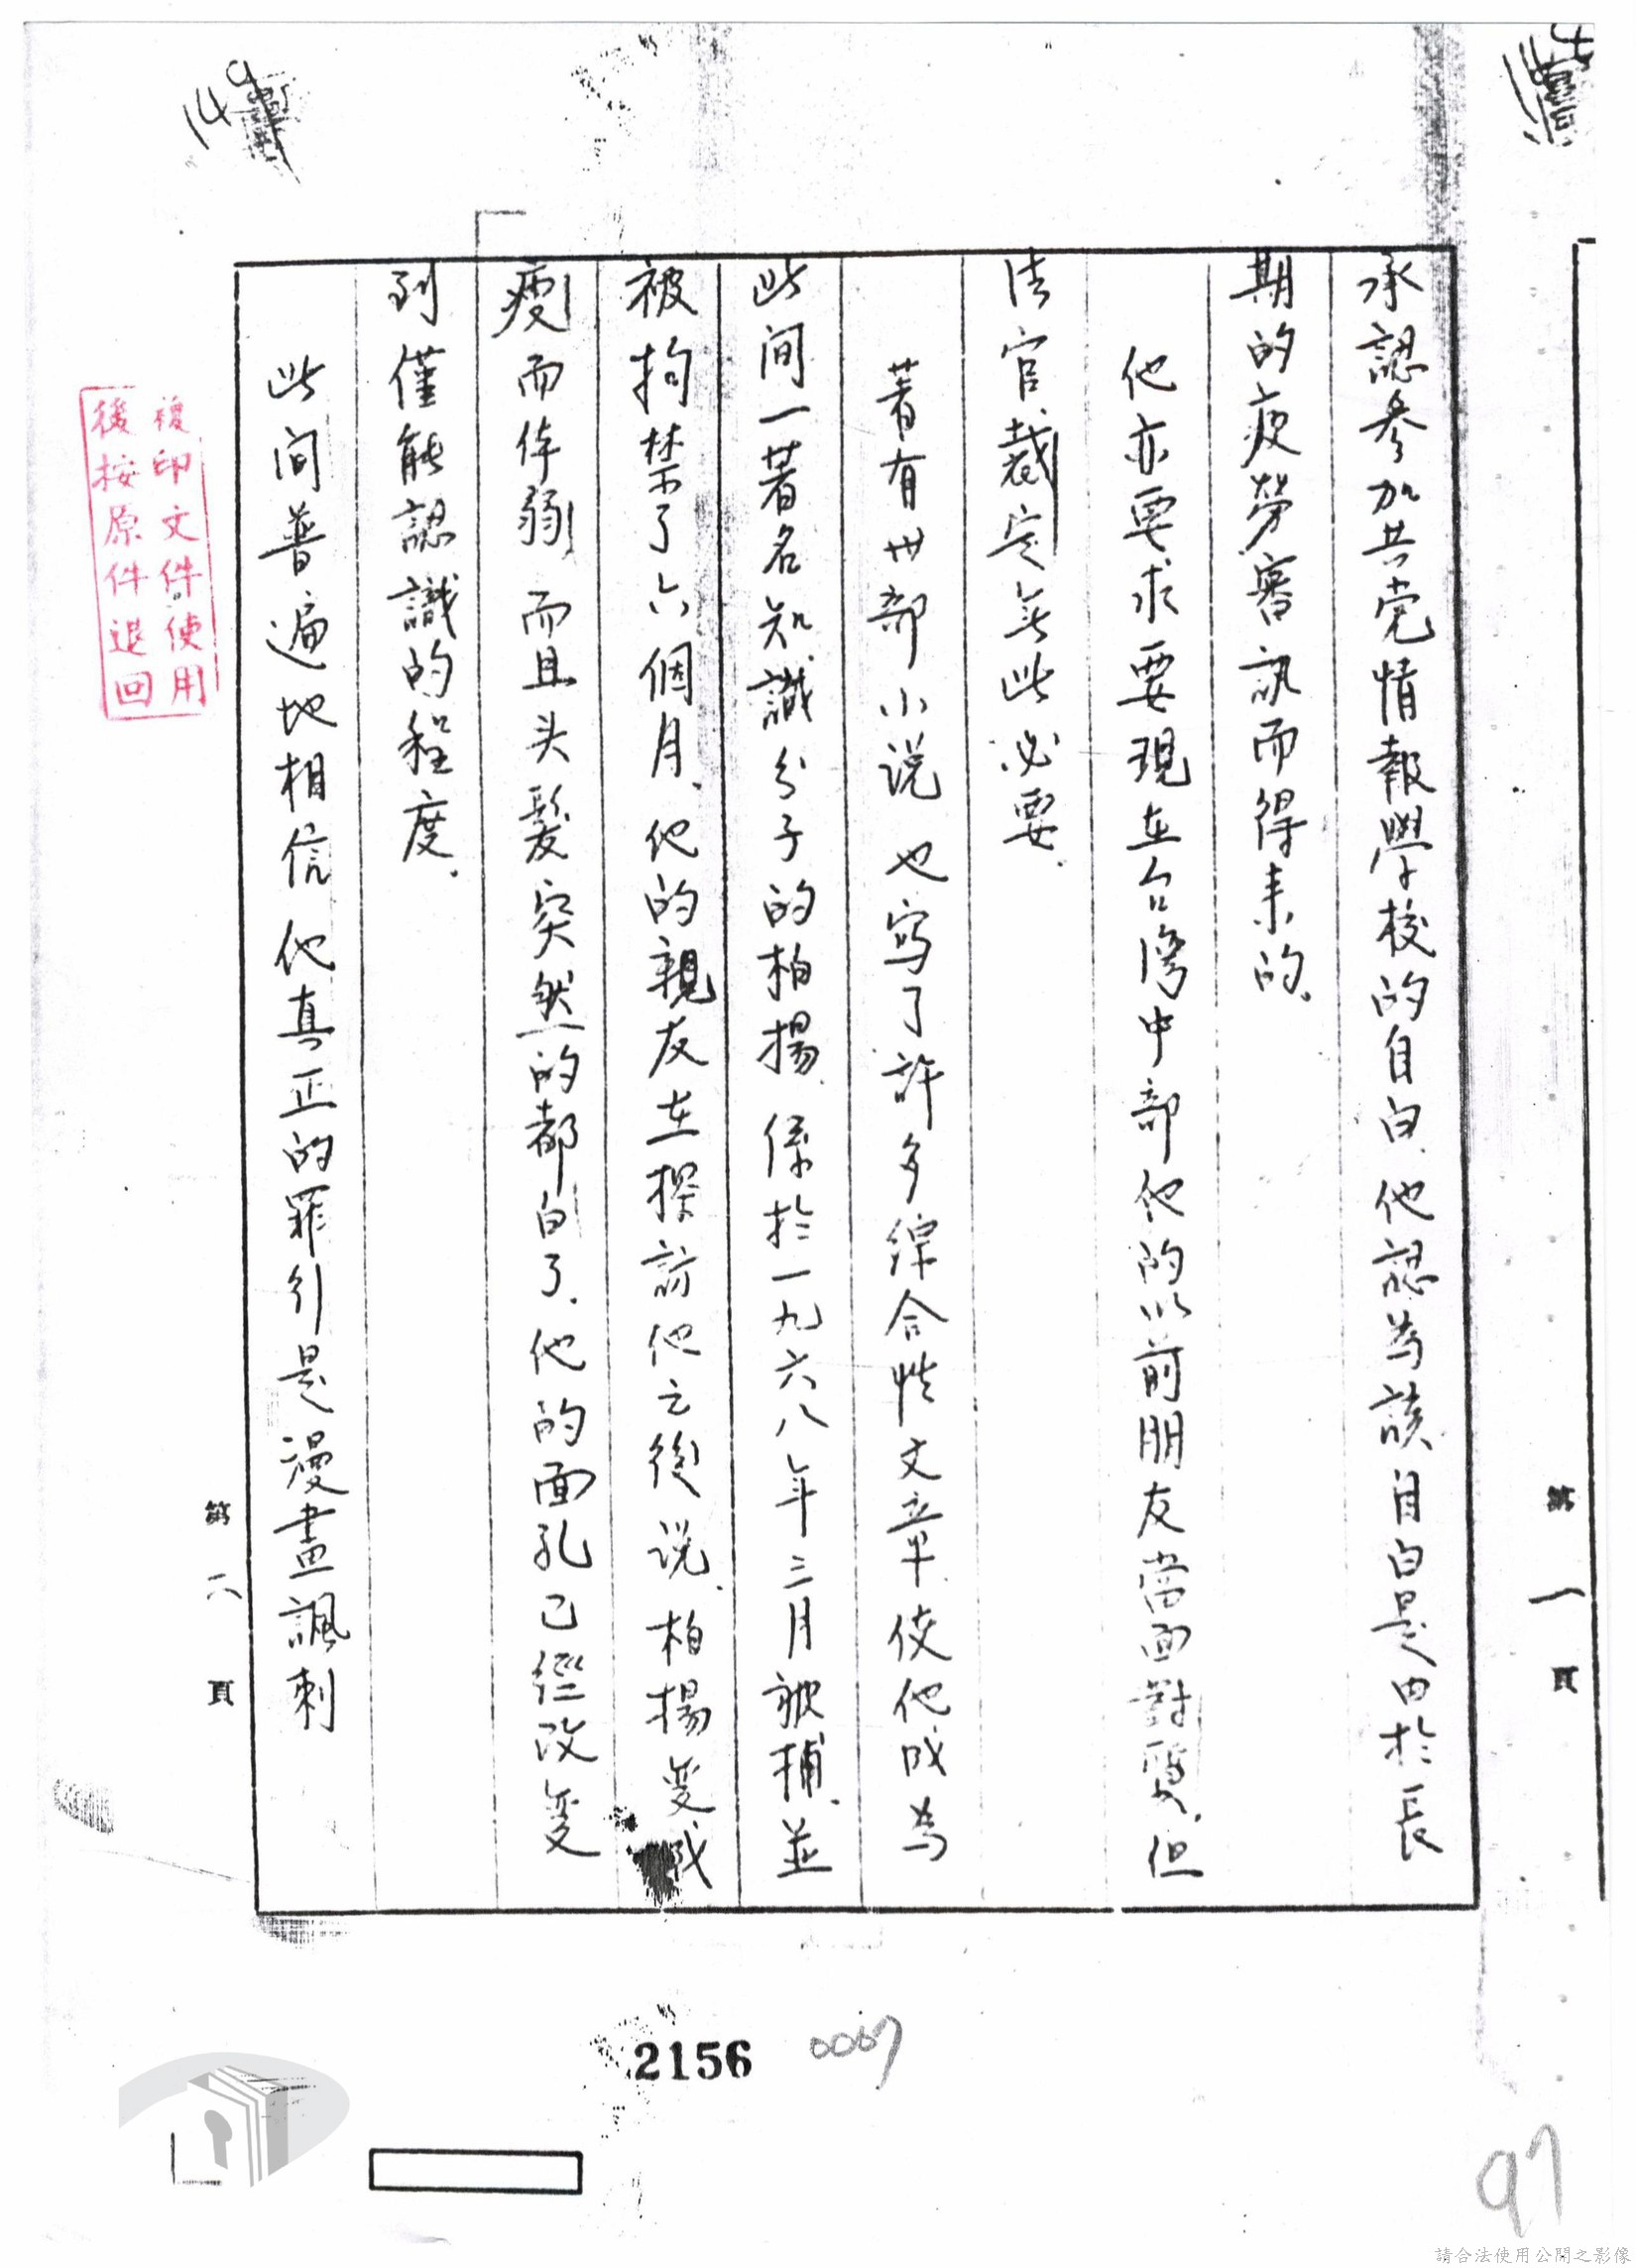 承認參加共党情報學校的自白、他認為該自白是由於長
期的疲勞審訊而得来的.
他亦要求要現在台湾中部他的以前朋友當面對質,但
法官裁定無此必要.
著有廿部小说 也寫了許多綜合性文章、使他成為
此间一著名知識分子的柏揚、係於一九六八年三月被捕、並
被拘禁了六個月、他的親友在探訪他之後说、柏揚变成
瘦而体弱、而且头髮突然的都白了、他的面孔已經改变
到僅能認識的程度.
此间普遍地相信他真正的罪行是漫畫諷刺
第 一 頁
第 六 頁
複印文件使用
後按原件退回
149
2156
0007
97
請合法使用公開之影像